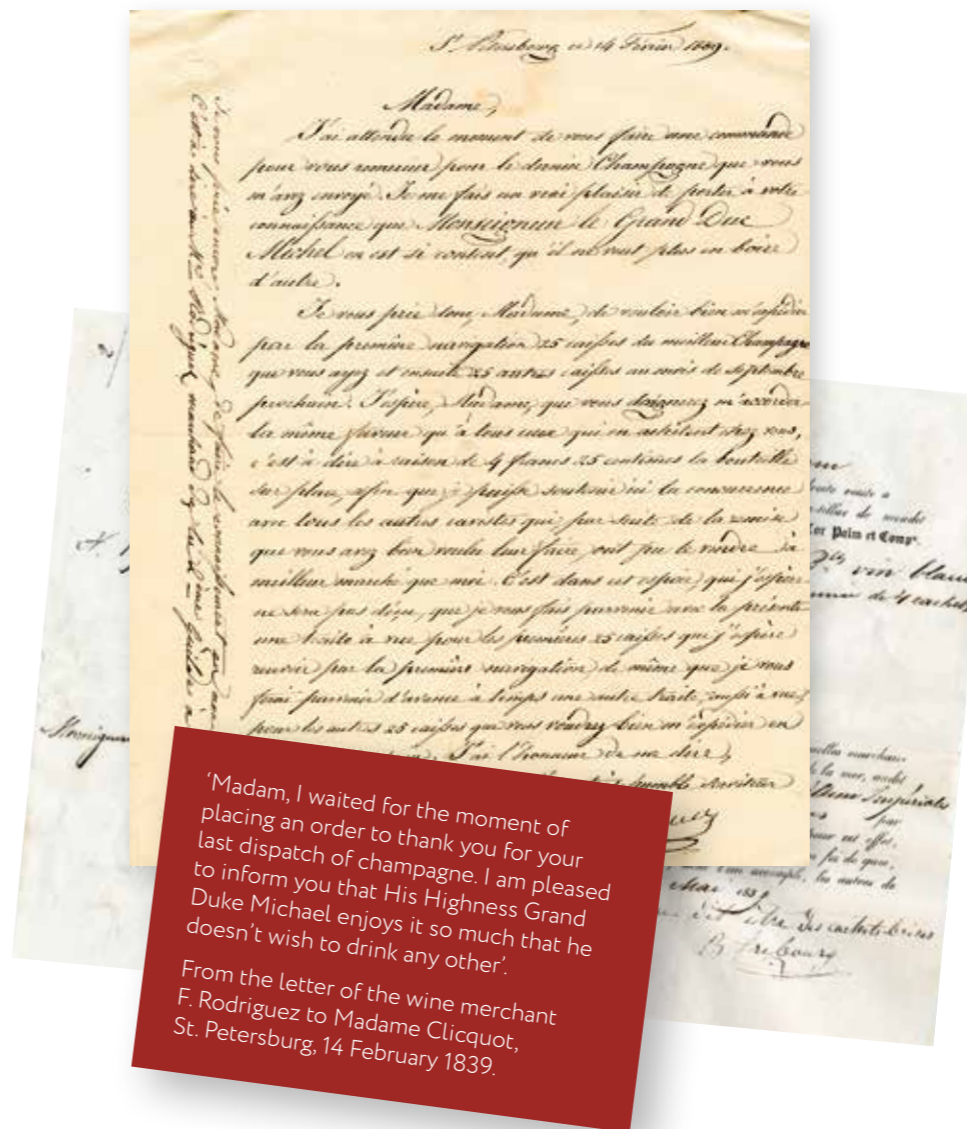 St. Petersbourg ce 14 Février 1839.
Madame,
J'ai attendu le moment de vous faire une commande
pour vous remercier pour le dernier Champagne que vous
m'avez envoyé. Je me fais un vrai plaisir de porter à votre
connaissance que Monseigneur le Grand Duc
Michel en est si content, qu'il ne veut plus en boire
d'autre.
Je vous prie donc, Madame, de vouloir bien m'expédier
par la première navigation 25 caisses du meilleur Champagne
que vous ayez et ensuite 25 autres caisses au mois de Septembre
prochain. J'espère, Madame, que vous daignerez m'accorder
la même faveur qu'à tous ceux qui en achètent chez vous,
c'est à dire à raison de 4 francs 25 centimes la bouteille
sur place, afin que je puisse soutenir ici la concurrence
avec tous les autres cavistes qui par suite de la remise
que vous avez bien voulu leur faire, ont pu le vendre à
meilleur marché que moi. C'est dans cet espoir, qui j'espère
ne sera pas déçu, que je vous fais parvenir avec la présente
une traite à vue pour les premières 25 caisses que j'espère
recevoir par la première navigation de même que je vous
ferai parvenir d'avance à temps une autre traite, aussi à vue,
pour les autres 25 caisses que vous voudrez bien m'expédier en
J'ai l'honneur de me dire,
humble serviteur
Je vous prie encore, Madame, de faire
C'est à dire au marchand de la 2ème Guilde à
Palm et Compe.
vin blanc
de 4 cachets
de la mer,
Impériale
par
foi de quoi,
accompli, les autres de
Mai
être des cachets brisés
‘Madam, I waited for the moment of
placing an order to thank you for your
last dispatch of champagne. I am pleased
to inform you that His Highness Grand
Duke Michael enjoys it so much that he
doesn’t wish to drink any other’.
From the letter of the wine merchant
F. Rodriguez to Madame Clicquot,
St. Petersburg, 14 February 1839.